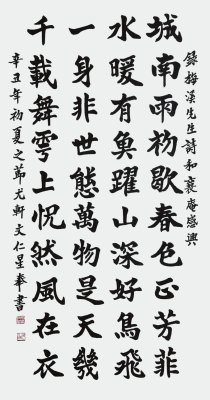 錄梅溪先生詩和襄庵感興
城南雨初歇春色正芳菲
水暖有魚躍山深好鳥飛
一身非世態萬物是天幾
千載舞雩上怳然風在衣
辛丑年初夏之節尤軒文仁星奉書